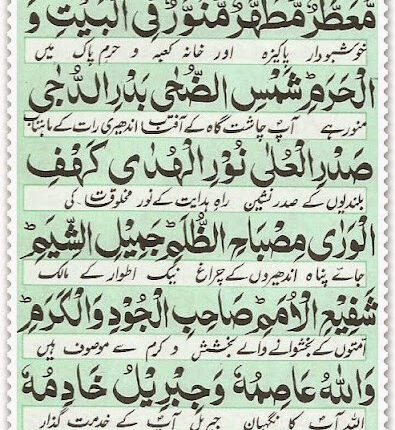 مُّعَطَّرٌ مُّطَهَّرٌ مُّنَوَّرٌ فِی الْبَیْتِ وَ
خوشبودار پاکیزہ اور خانہ کعبہ و حرم پاک میں
الْحَرَمِؕ شَمْسِ الضُّحٰی بَدْرِ الدُّجٰی
منور ہے آپؐ چاشت گاہ کے آفتاب اندھیری رات کے ماہتاب
صَدْرِ الْعُلٰی نُوْرِ الْهُدٰی کَهْفِ
بلندیوں کے صدر نشین راہِ ہدایت کے نور مخلوقات کی
الْوَرٰی مِصْبَاحِ الظُّلَمِؕ جَمِیْلِ الشِّیَمِؕ
جائے پناہ اندھیروں کے چراغ نیک اطوار کے مالک
شَفِیْعِ الْاُمَمِؕ صَاحِبِ الْجُوْدِ وَالْکَرَمِؕ
امتوں کے بخشوانے والے بخشش و کرم سے موصوف ہیں
وَاللّٰهُ عَاصِمُهٗ وَجِبْرِیْلُ خَادِمُهٗ
اللہ آپؐ کا نگہبان جبریل آپؐ کے خدمت گذار